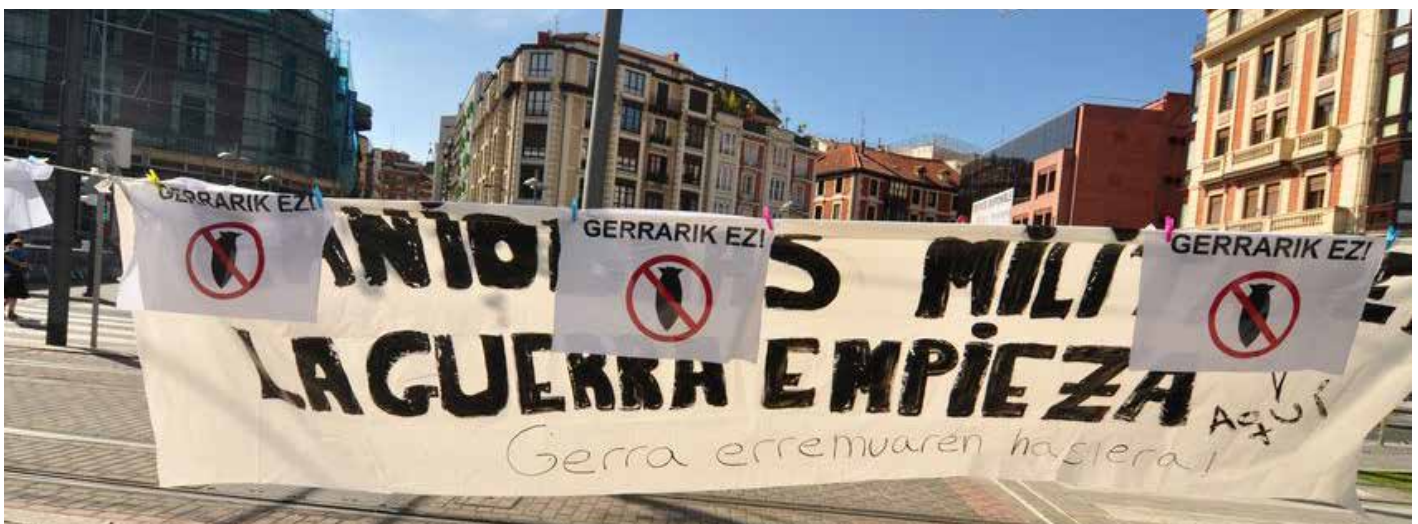 GERRARIK EZ!
GERRARIK EZ!
GERRARIK EZ!
LA GUERRA EMPIEZA
Aquí
Gerra erremuaren hasiera!